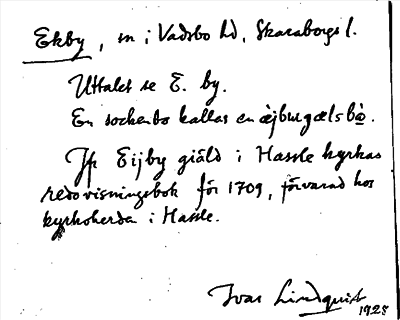 Ekby, sn i Vadsbo hd, Skaraborgs l.
Uttalet se E. by.
En sockenbo kallas en æ̀jburgælsbo̱.
Jfr Eijby giäld i Hassle kyrkas
redovisningsbok för 1709, förvarad hos
kyrkoherden i Hassle.
Ivar Lindquist
1925